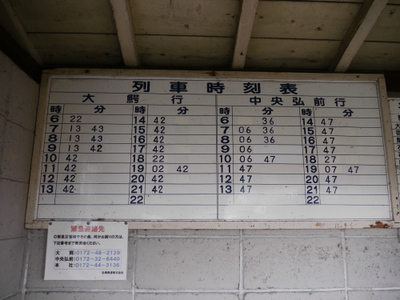 列車時刻表
大鰐行 中央弘前行
時 分 時 分 時 分 時 分
6 22 14 42 6 36 14 47
7 13 43 15 42 7 06 36 15 47
8 13 43 16 42 8 06 36 16 47
9 13 42 17 42 9 06 17 47
10 42 18 22 10 06 47 18 27
11 42 19 02 42 11 47 19 07 47
12 42 20 42 12 47 20 47
13 42 21 42 13 47 21 47
22 22
緊急連絡先
中央弘前
本社 0172-44-3136
弘南鉄道株式会社